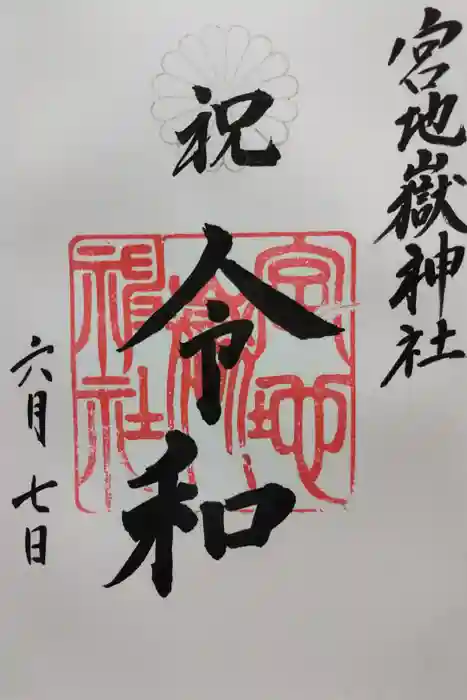 宮地嶽神社
祝
令和
六月七日
宮地
嶽
神社